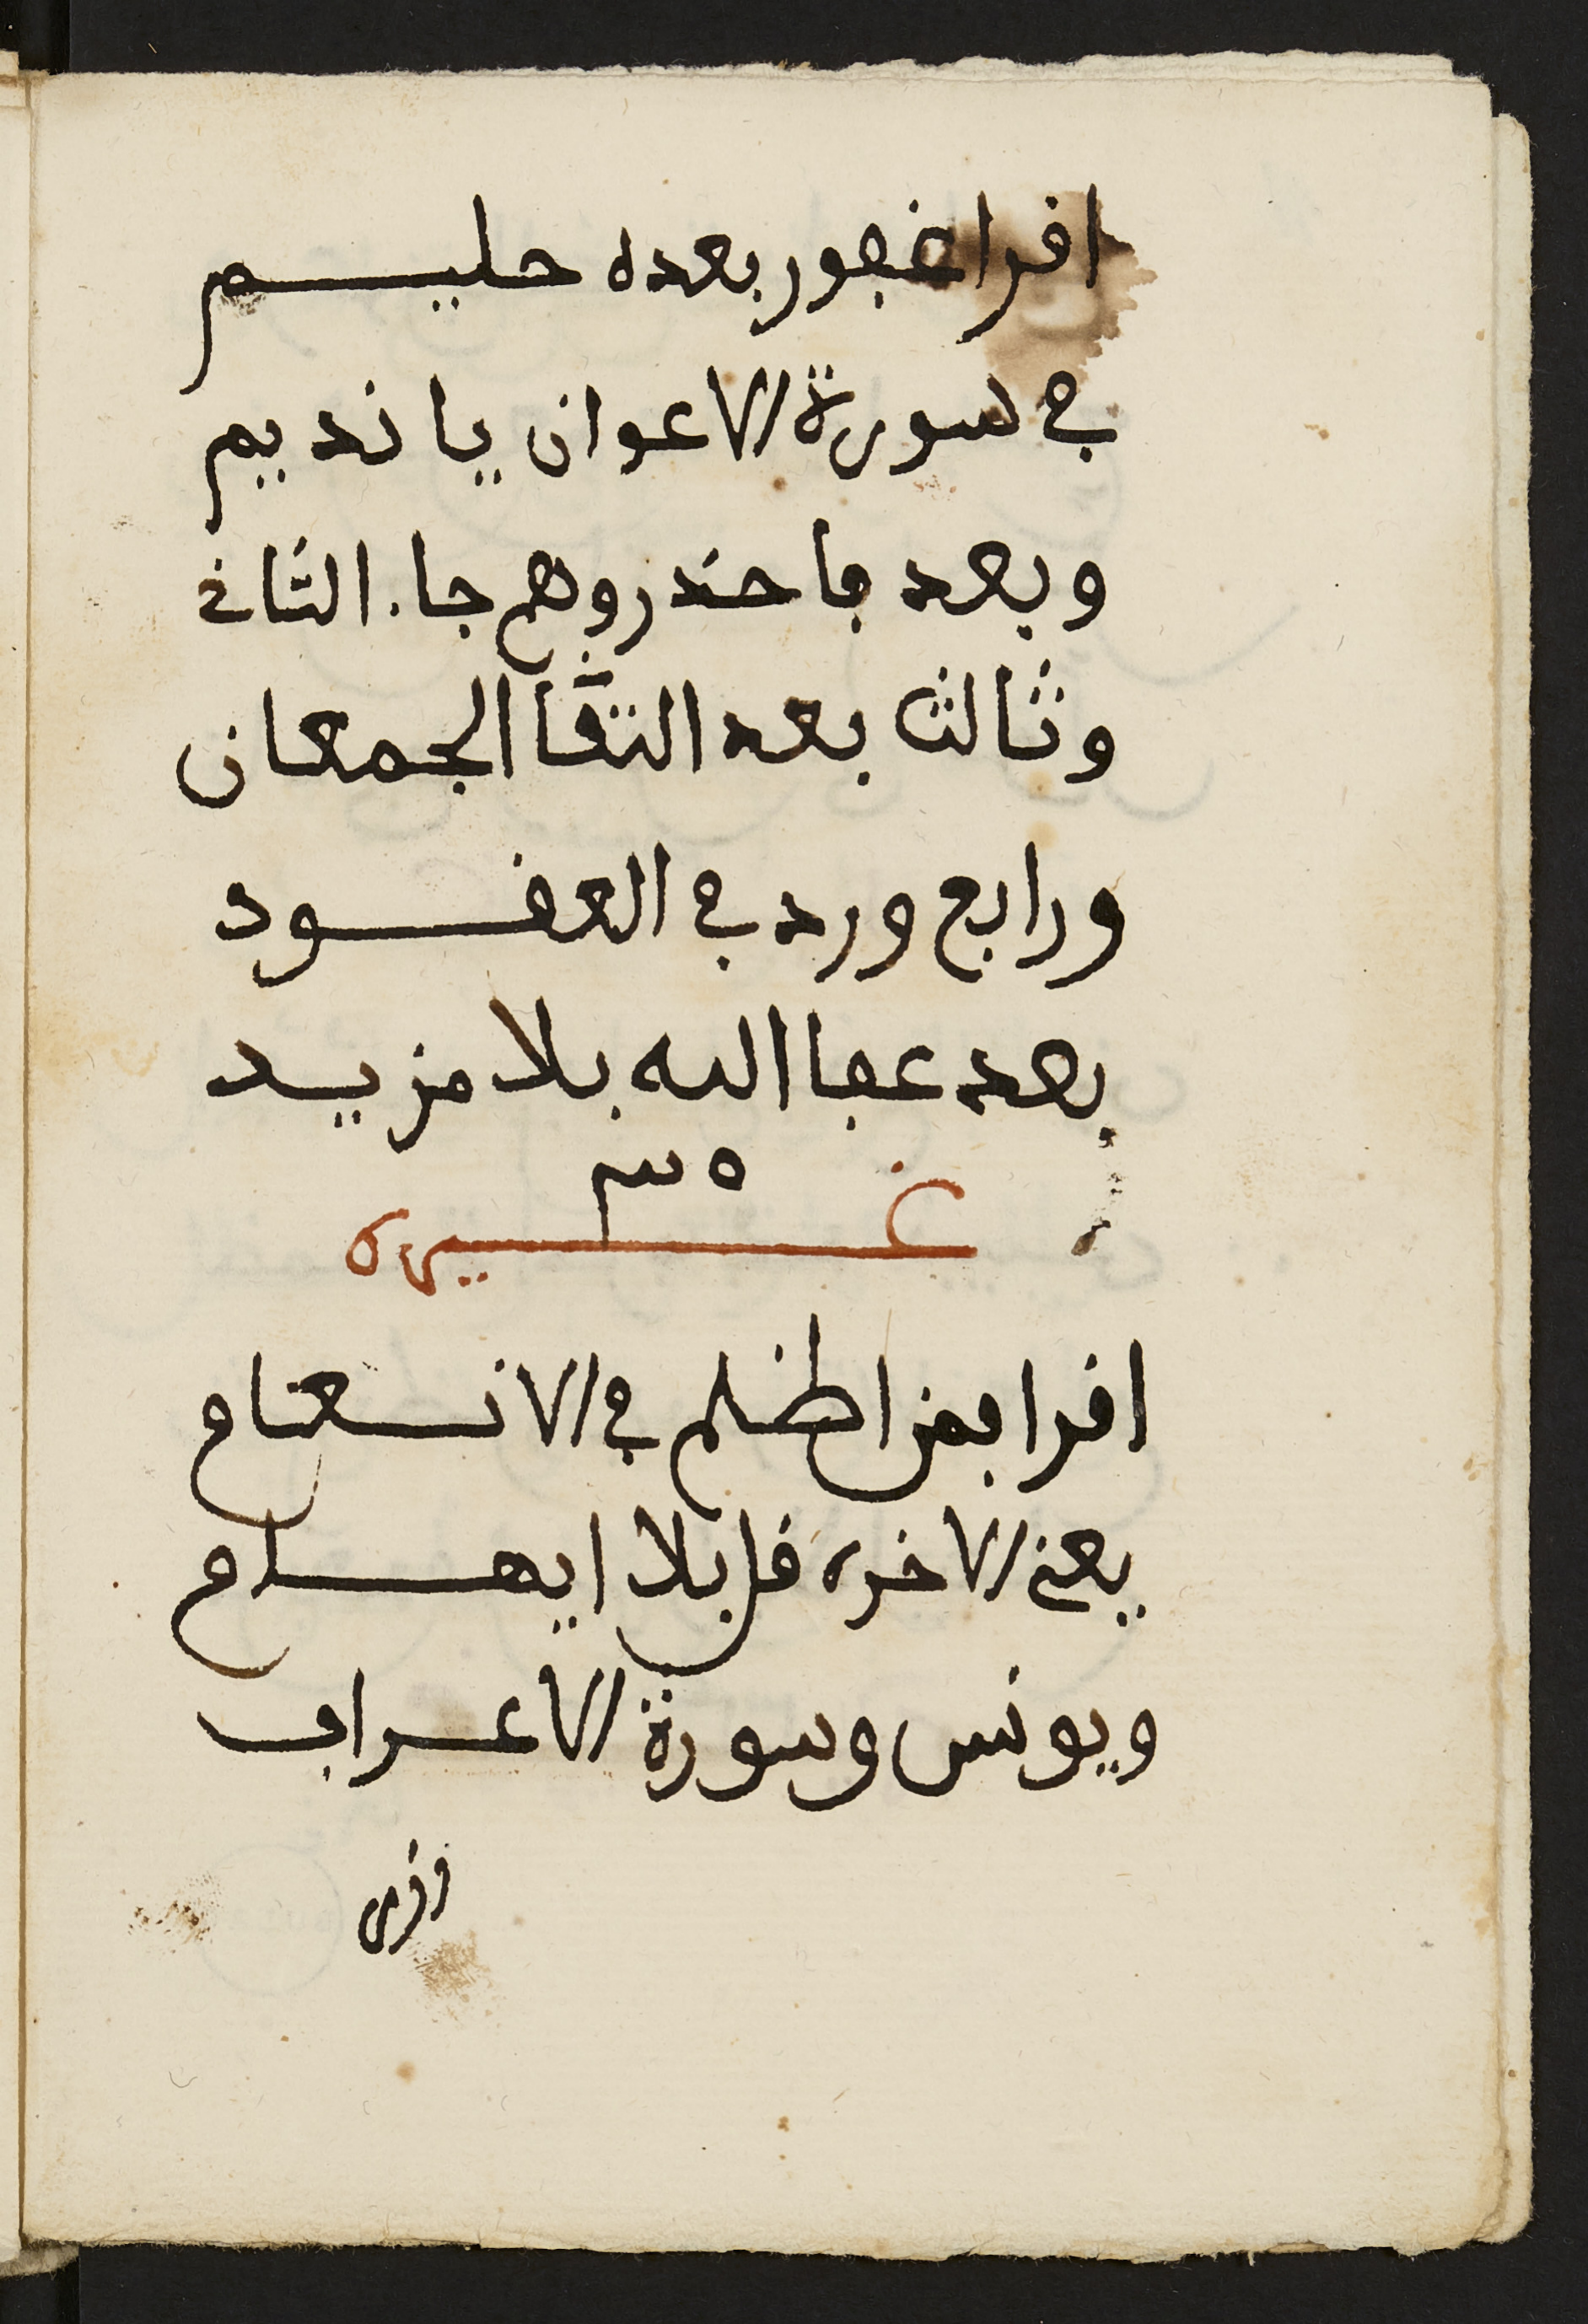 اقرا غفور بعده حليم
في سورة الاعوان يا نديم
وبعد فاحذروهم جا. الثاني
وثالث بعد التقا الجمعان
ورابع ورد في العقود
بعد عفا الله بلا مزيد
غيره
اقرا بمن اظلم في الانعام
يعني الاخر، قل بلا ايهام
ويونس وسورة الاعراف